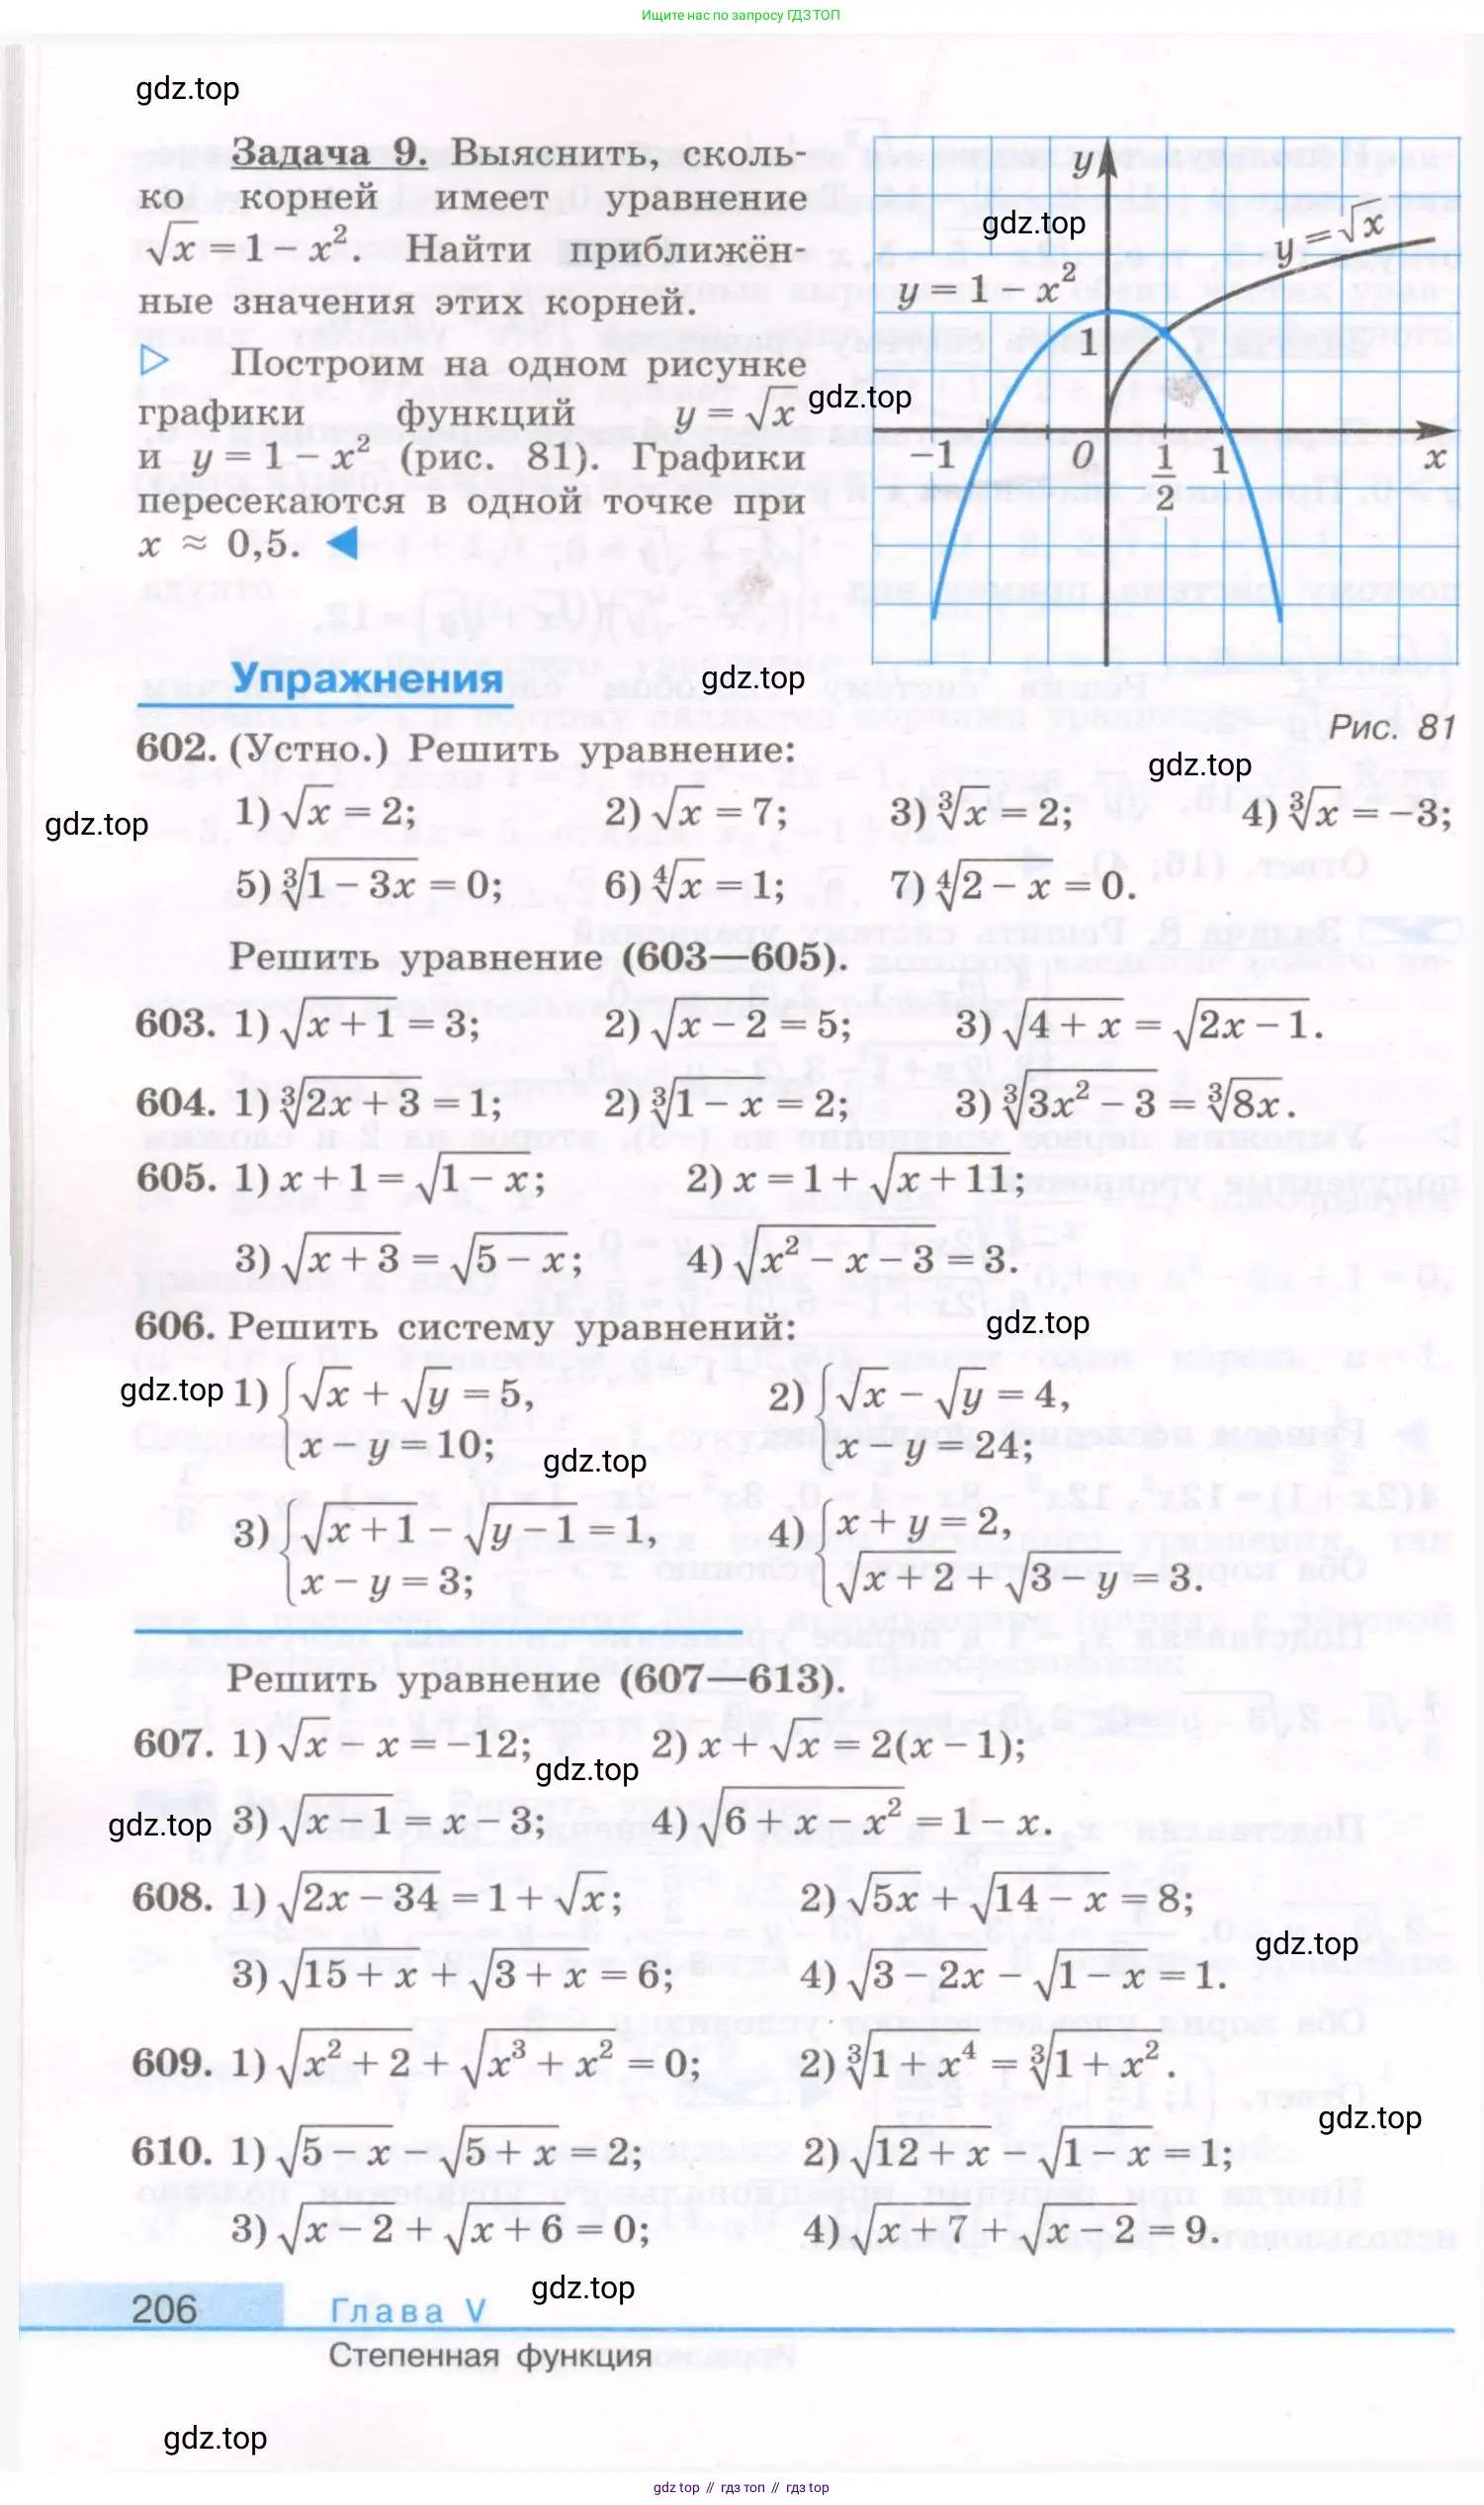 Ищите нас по запросу ГДЗ ТОП
gdz.top
Задача 9. Выяснить, сколь-
ко корней имеет уравнение
√x = 1 x². Найти приближён-
ные значения этих корней.
▷ Построим на одном рисунке
графики функций y = √x
и y = 1 − x² (рис. 81). Графики
пересекаются в одной точке при
x ≈ 0,5. ◀
gdz.top
y
gdz.top
y = √x
y = 1 − x²
1
−1 0 1/2 1 x
Рис. 81
Упражнения
gdz.top
602. (Устно.) Решить уравнение:
gdz.top
gdz.top
1) √x = 2; 2) √x = 7; 3) ∛x = 2; 4) ∛x = −3;
5) ∛(1 − 3x) = 0; 6) ∜x = 1; 7) ∜(2 − x) = 0.
Решить уравнение (603—605).
603. 1) √(x + 1) = 3; 2) √(x − 2) = 5; 3) √(4 + x) = √(2x − 1).
604. 1) ∛(2x + 3) = 1; 2) ∛(1 − x) = 2; 3) ∛(3x² − 3) = ∛(8x).
605. 1) x + 1 = √(1 − x); 2) x = 1 + √(x + 11);
3) √(x + 3) = √(5 − x); 4) √(x² − x − 3) = 3.
606. Решить систему уравнений:
gdz.top
gdz.top
1) {√x + √y = 5, 2) {√x − √y = 4,
x − y = 10; x − y = 24;
gdz.top
3) {√(x + 1) − √(y − 1) = 1, 4) {x + y = 2,
x − y = 3; √(x + 2) + √(3 − y) = 3.
Решить уравнение (607—613).
607. 1) √x − x = −12; 2) x + √x = 2(x − 1);
gdz.top
gdz.top
3) √(x − 1) = x − 3; 4) √(6 + x − x²) = 1 − x.
608. 1) √(2x − 34) = 1 + √x; 2) √(5x) + √(14 − x) = 8;
gdz.top
3) √(15 + x) + √(3 + x) = 6; 4) √(3 − 2x) − √(1 − x) = 1.
609. 1) √(x² + 2) + √(x³ + x²) = 0; 2) ∛(1 + x⁴) = ∛(1 + x²).
gdz.top
610. 1) √(5 x) √(5 + x) = 2; 2) √(12 + x) √(1 x) = 1;
3) √(x − 2) + √(x + 6) = 0; 4) √(x + 7) + √(x − 2) = 9.
gdz.top
206 Глава V
Степенная функция
gdz.top
gdz top // гдз топ // гдз top